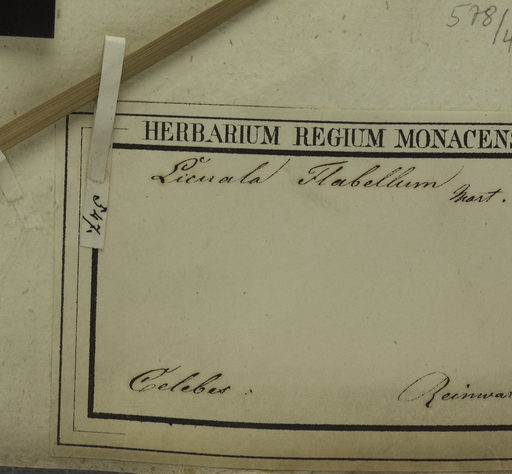 578/4
HERBARIUM REGIUM MONACENS
Licuala Flabellum Mart.
547
Celebes. Reinwar